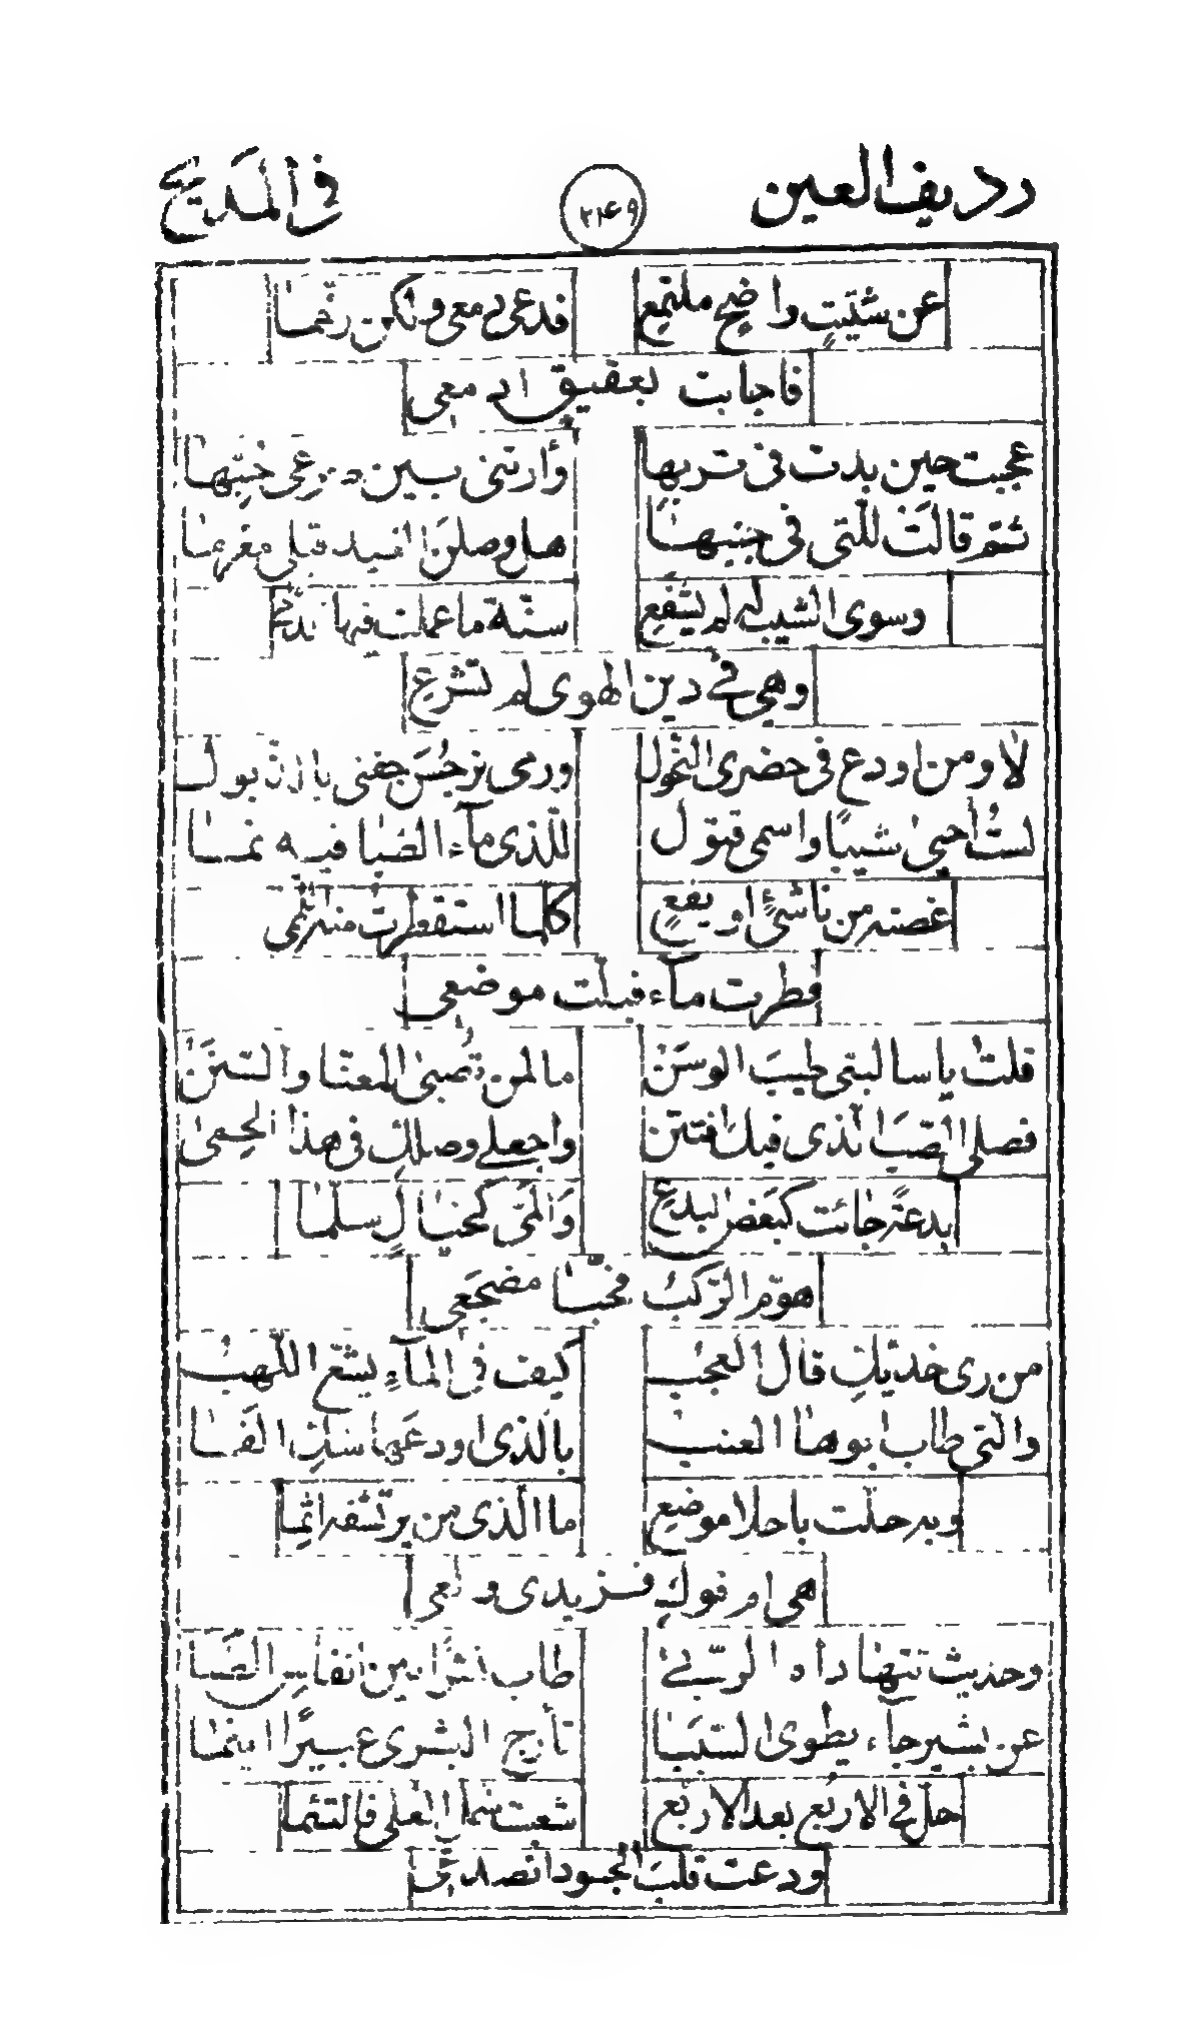 رديف العين ٢٤٩ في المديح
عن شتيتٍ واضحٍ ملتمع فدعى دمعى ولكن رخما
فاجابت بعقيق ادمعى
عجبت حين بدت فى تربها وأرتنى بين
ثم قالت للتى فى جنبها هل وصلن الغيد قبلى مغرما
وسوى الشيب له لم يشفع سنة ما عملت فيها
وهى فى دين الهوى لم تشرع
لا ومن اودع فى خصرى النحول ورمى نرجس جفنى بالذبول
لست احيى شيبًا واسمى قتول للذى مآء الصبا فيه نما
غصنه من ناشئٍ او يفع كلما استقطرت منه
قطرت مآء فبلت موضعى
قلت يا سالبتى طيب الوسن ما لمن تصبى المعنا والسنن
فصلى الصب الذى فيك افتتن واجعلى وصلك فى هذا الحمى
بدعة جائت كبعض البدع وألمى كخيال سلما
هوم الركب فحيا مضجعى
من رى خديك قال العجب كيف فى المآء يشع اللهب
والتى طاب ابوها العنب بالذى اودعها منك الفما
وبه حلت باحلا موضع ما الذى من يرتشفه اثما
هى ام فوك فزيدى ولعى
وحديث تتهاداه الربى طاب نشرا من انفاس الصبا
عن بشير جآء يطوى السبسبا تأرج البشرى عبيرًا اينما
حل فى الاربع بعد الاربع شعبت شمل العلى فالتئما
ودعت قلب الحسود انصدع